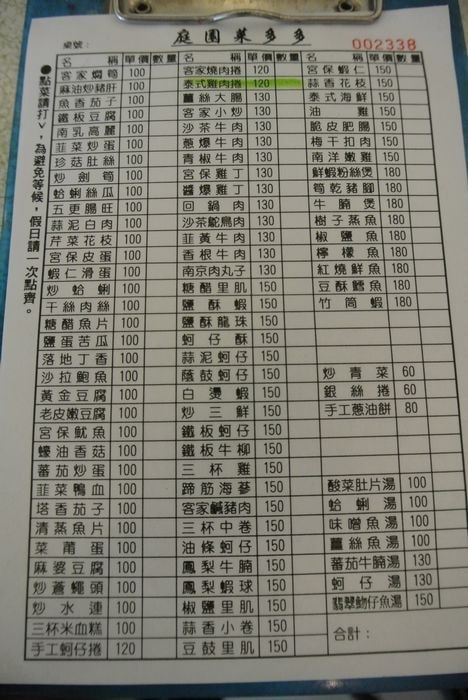 庭園菜多多
桌號：
002338
●點菜請打ˇ，為避免等候，假日請一次點齊。
名稱 單價 數量 名稱 單價 數量 名稱 單價 數量
客家燜筍 100 客家燒肉捲 120 宮保蝦仁 150
麻油炒豬肝 100 泰式雞肉捲 120 蒜香花枝 150
魚香茄子 100 薑絲大腸 130 泰式海鮮 150
鐵板豆腐 100 客家小炒 130 油雞 150
南乳高麗 100 沙茶牛肉 130 脆皮肥腸 150
韮菜炒蛋 100 蔥爆牛肉 130 梅干扣肉 150
珍菇肚絲 100 青椒牛肉 130 南洋嫩雞 150
炒劍筍 100 宮保雞丁 130 鮮蝦粉絲煲 180
蛤蜊絲瓜 100 醬爆雞丁 130 筍乾豬腳 180
五更腸旺 100 回鍋肉 130 牛腩煲 180
蒜泥白肉 100 沙茶鴕鳥肉 130 樹子蒸魚 180
芹菜花枝 100 韮黃牛肉 130 椒鹽魚 180
宮保皮蛋 100 香根牛肉 130 檸檬魚 180
蝦仁滑蛋 100 南京肉丸子 130 紅燒鮮魚 180
炒蛤蜊 100 糖醋里肌 150 豆酥鱈魚 180
干絲肉絲 100 鹽酥蝦 150 竹筒蝦 180
糖醋魚片 100 鹽酥龍珠 150
鹽蛋苦瓜 100 蚵仔酥 150
落地丁香 100 蒜泥蚵仔 150
沙拉鮑魚 100 蔭鼓蚵仔 150 炒青菜 60
黃金豆腐 100 白燙蝦 150 銀絲捲 60
老皮嫩豆腐 100 炒三鮮 150 手工蔥油餅 80
宮保魷魚 100 鐵板蚵仔 150
蠔油香菇 100 鐵板牛柳 150
蕃茄炒蛋 100 三杯雞 150
韮菜鴨血 100 蹄筋海蔘 150 酸菜肚片湯 100
塔香茄子 100 客家鹹豬肉 150 蛤蜊湯 100
清蒸魚片 100 三杯中卷 150 味噌魚湯 100
菜莆蛋 100 油條蚵仔 150 薑絲魚湯 100
麻婆豆腐 100 鳳梨牛腩 150 蕃茄牛腩湯 130
炒蒼蠅頭 100 鳳梨蝦球 150 蚵仔湯 130
炒水蓮 100 椒鹽里肌 150 翡翠魩仔魚湯 150
三杯米血糕 100 蒜香小卷 150
手工蚵仔捲 120 豆鼓里肌 150
合計：